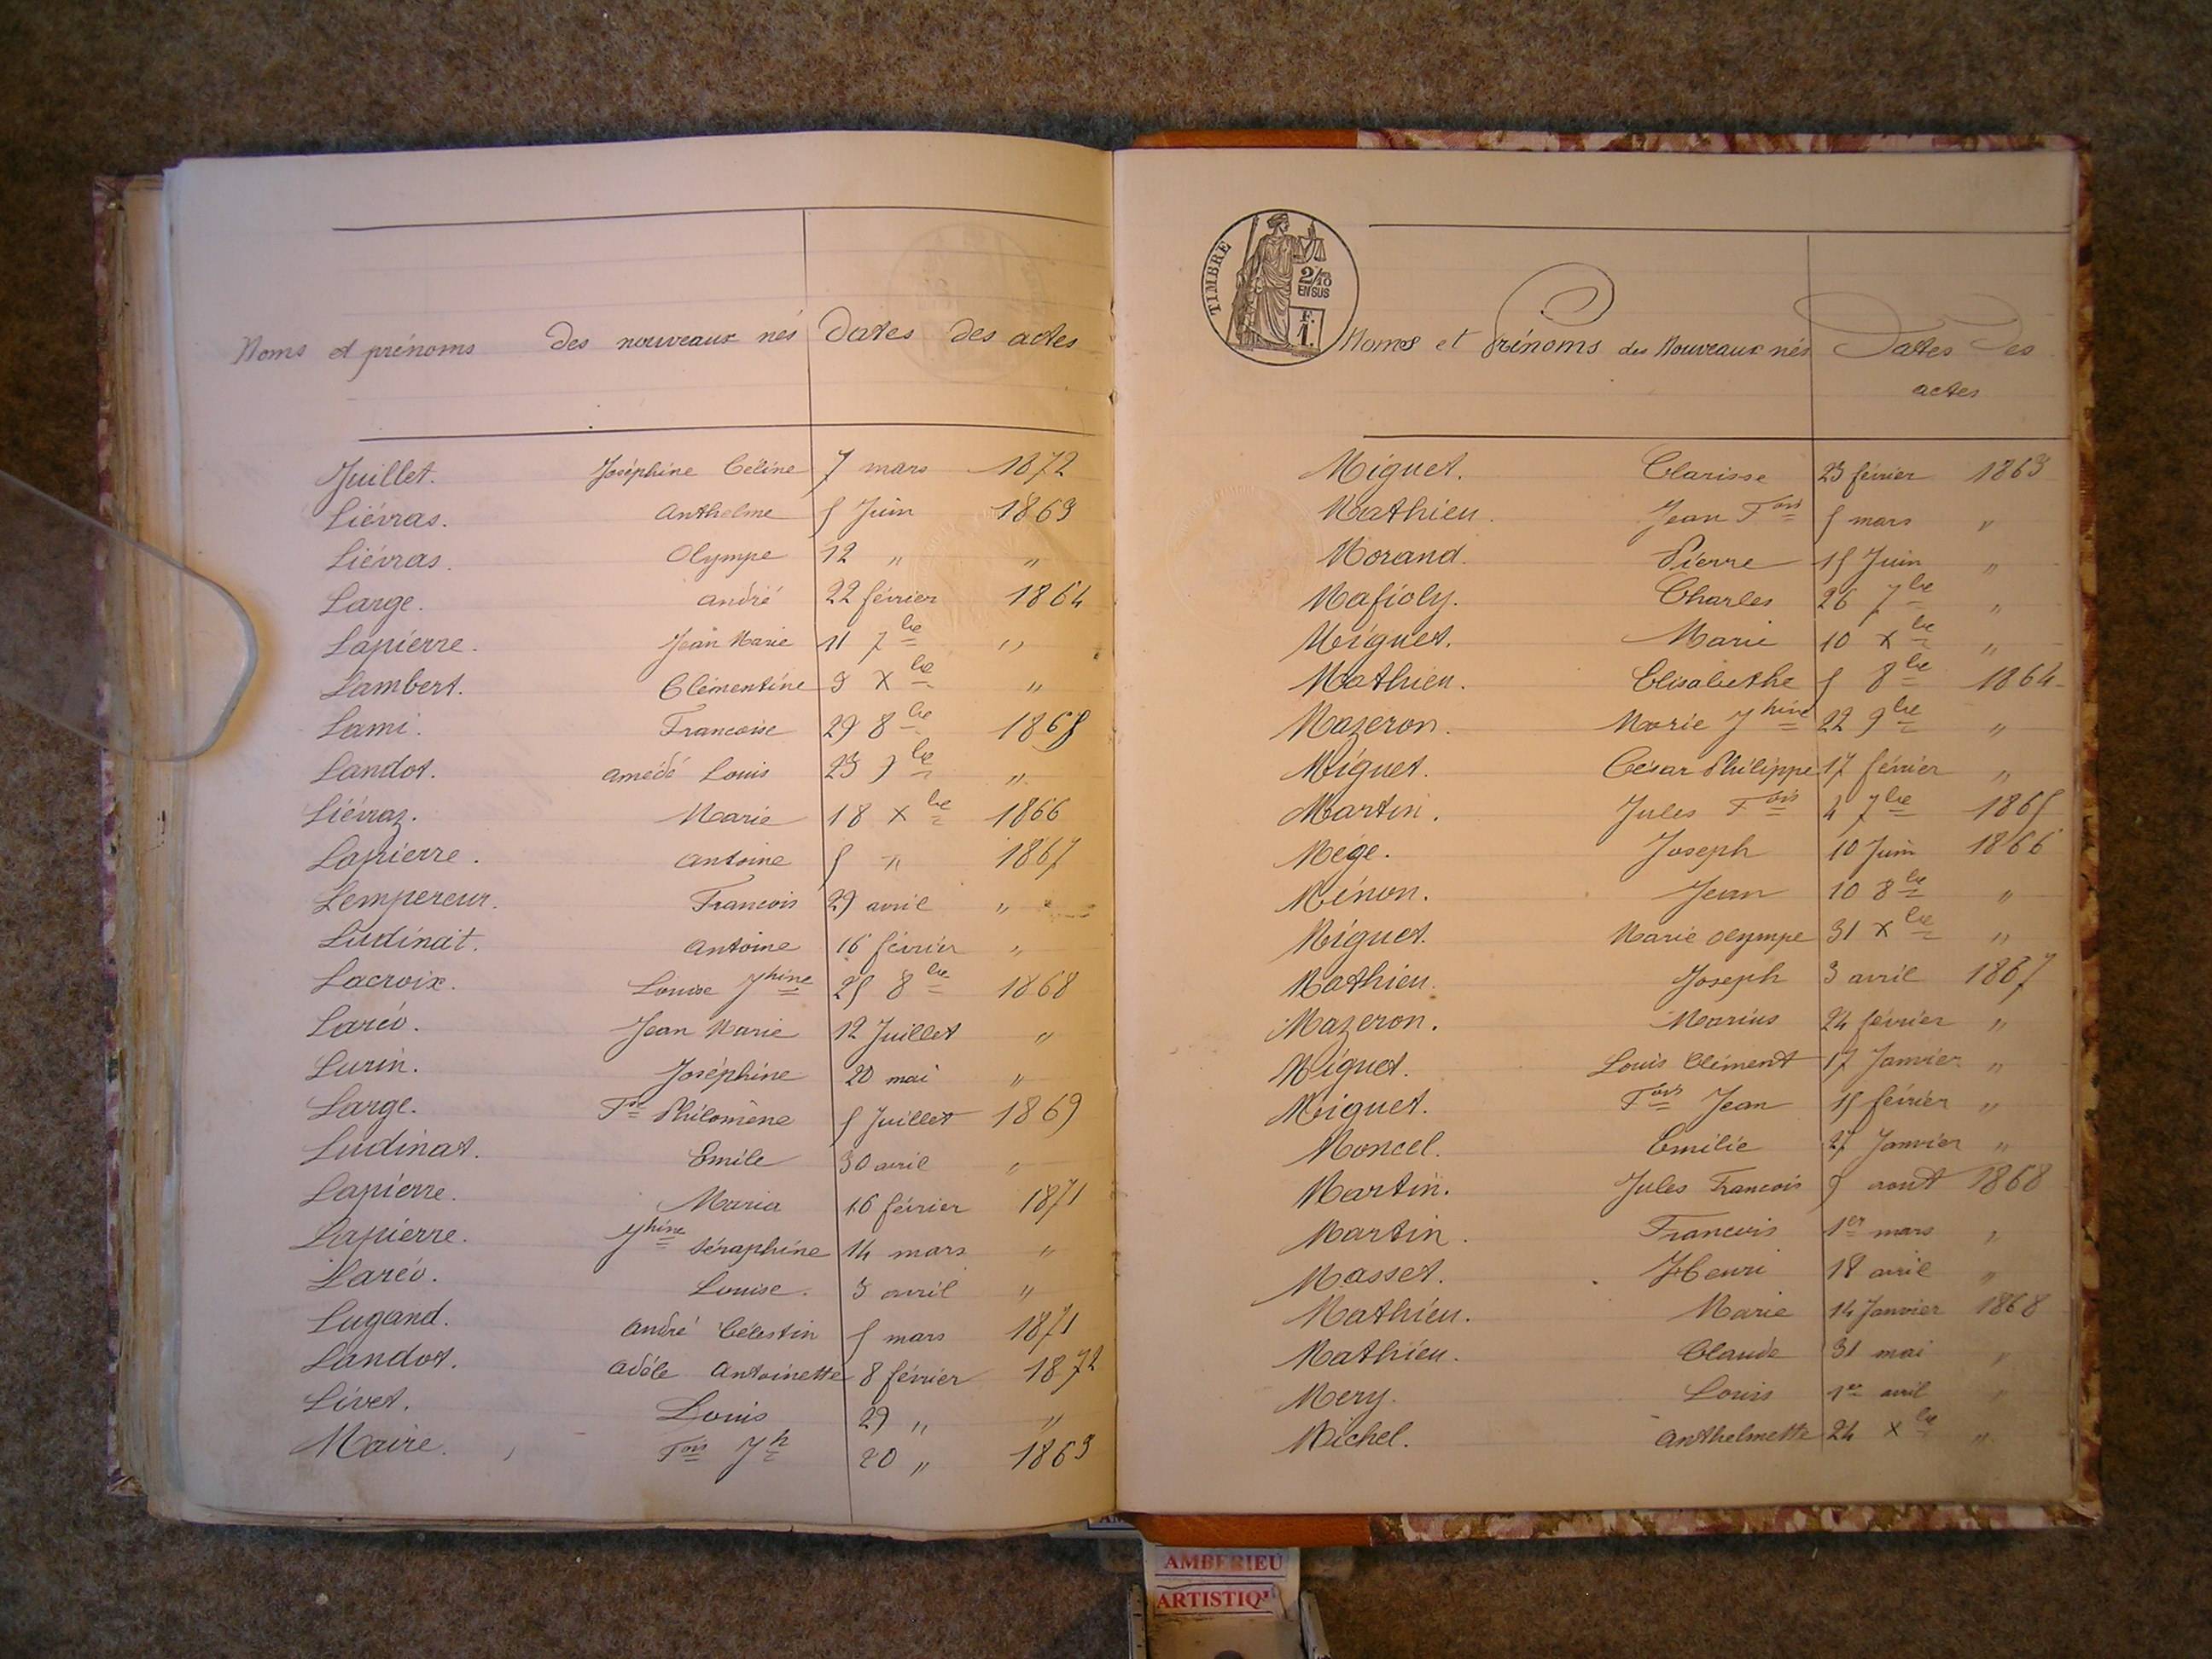 Noms et prénoms des nouveaux nés Dates des actes
Juillet. Joséphine Céline 7 mars 1872
Liévras. Anthelme 5 Juin 1863
Liévras. Olympe 12 " "
Large. André 22 février 1864
Lapierre. Jean Marie 11 7bre "
Lambert. Clémentine 9 Xbre "
Lami. Francoise 29 8bre 1865
Landot. Amédé Louis 23 9bre "
Liévraz. Marie 18 Xbre 1866
Lapierre. Antoine 5 " 1867
Lempereur. Francois 29 avril "
Ludinait. Antoine 16 février "
Lacroix. Louise Jhine 25 8bre 1868
Laréo. Jean Marie 12 Juillet "
Lurin. Joséphine 20 mai "
Large. Philomène 5 Juillet 1869
Ludinat. Emile 30 avril "
Lapierre. Maria 16 février 1871
Lapierre. Jhine Séraphine 14 mars "
Laréo. Louise. 3 avril "
Lugand. André Célestin 5 mars 1871
Landot. Adèle Antoinette 8 février 1872
Livet. Louis 29 " "
Maire. Fois Jh 20 " 1863
TIMBRE
2/10
EN SUS
F.
1.
Noms et Prénoms des Nouveaux nés Dates des
actes
Miguet. Clarisse 23 février 1863
Mathieu. Jean Fois 5 mars "
Morand. Pierre 15 Juin "
Mafioly. Charles 26 7bre "
Miguet. Marie 10 Xbre "
Mathieu. Elisabethe 5 8bre 1864
Mazeron. Marie Jhine 22 9bre "
Miguet. César Philippe 17 février "
Martin. Jules Fois 4 7bre 1865
Mége. Joseph 10 Juin 1866
Ménon. Jean 10 8bre "
Miguet. Marie Olympe 31 Xbre "
Mathieu. Joseph 3 avril 1867
Mazeron. Marius 24 février "
Miguet. Louis Clément 17 Janvier "
Miguet. Fois Jean 15 février "
Moncel. Emilie 27 Janvier "
Martin. Jules Francois 5 aout 1868
Martin. Francois 1er mars "
Masset. Henri 18 avril "
Mathieu. Marie 14 Janvier 1868
Mathieu. Claude 31 mai "
Mery. Louis 1er avril "
Michel. Anthelmette 24 Xbre "
AMBERIEU
ARTISTIQU